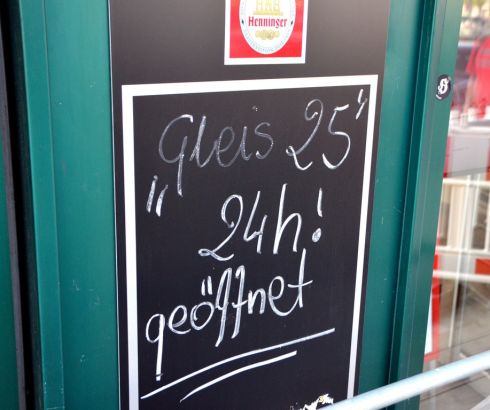 Henninger
„Gleis 25"
24h!
geöffnet